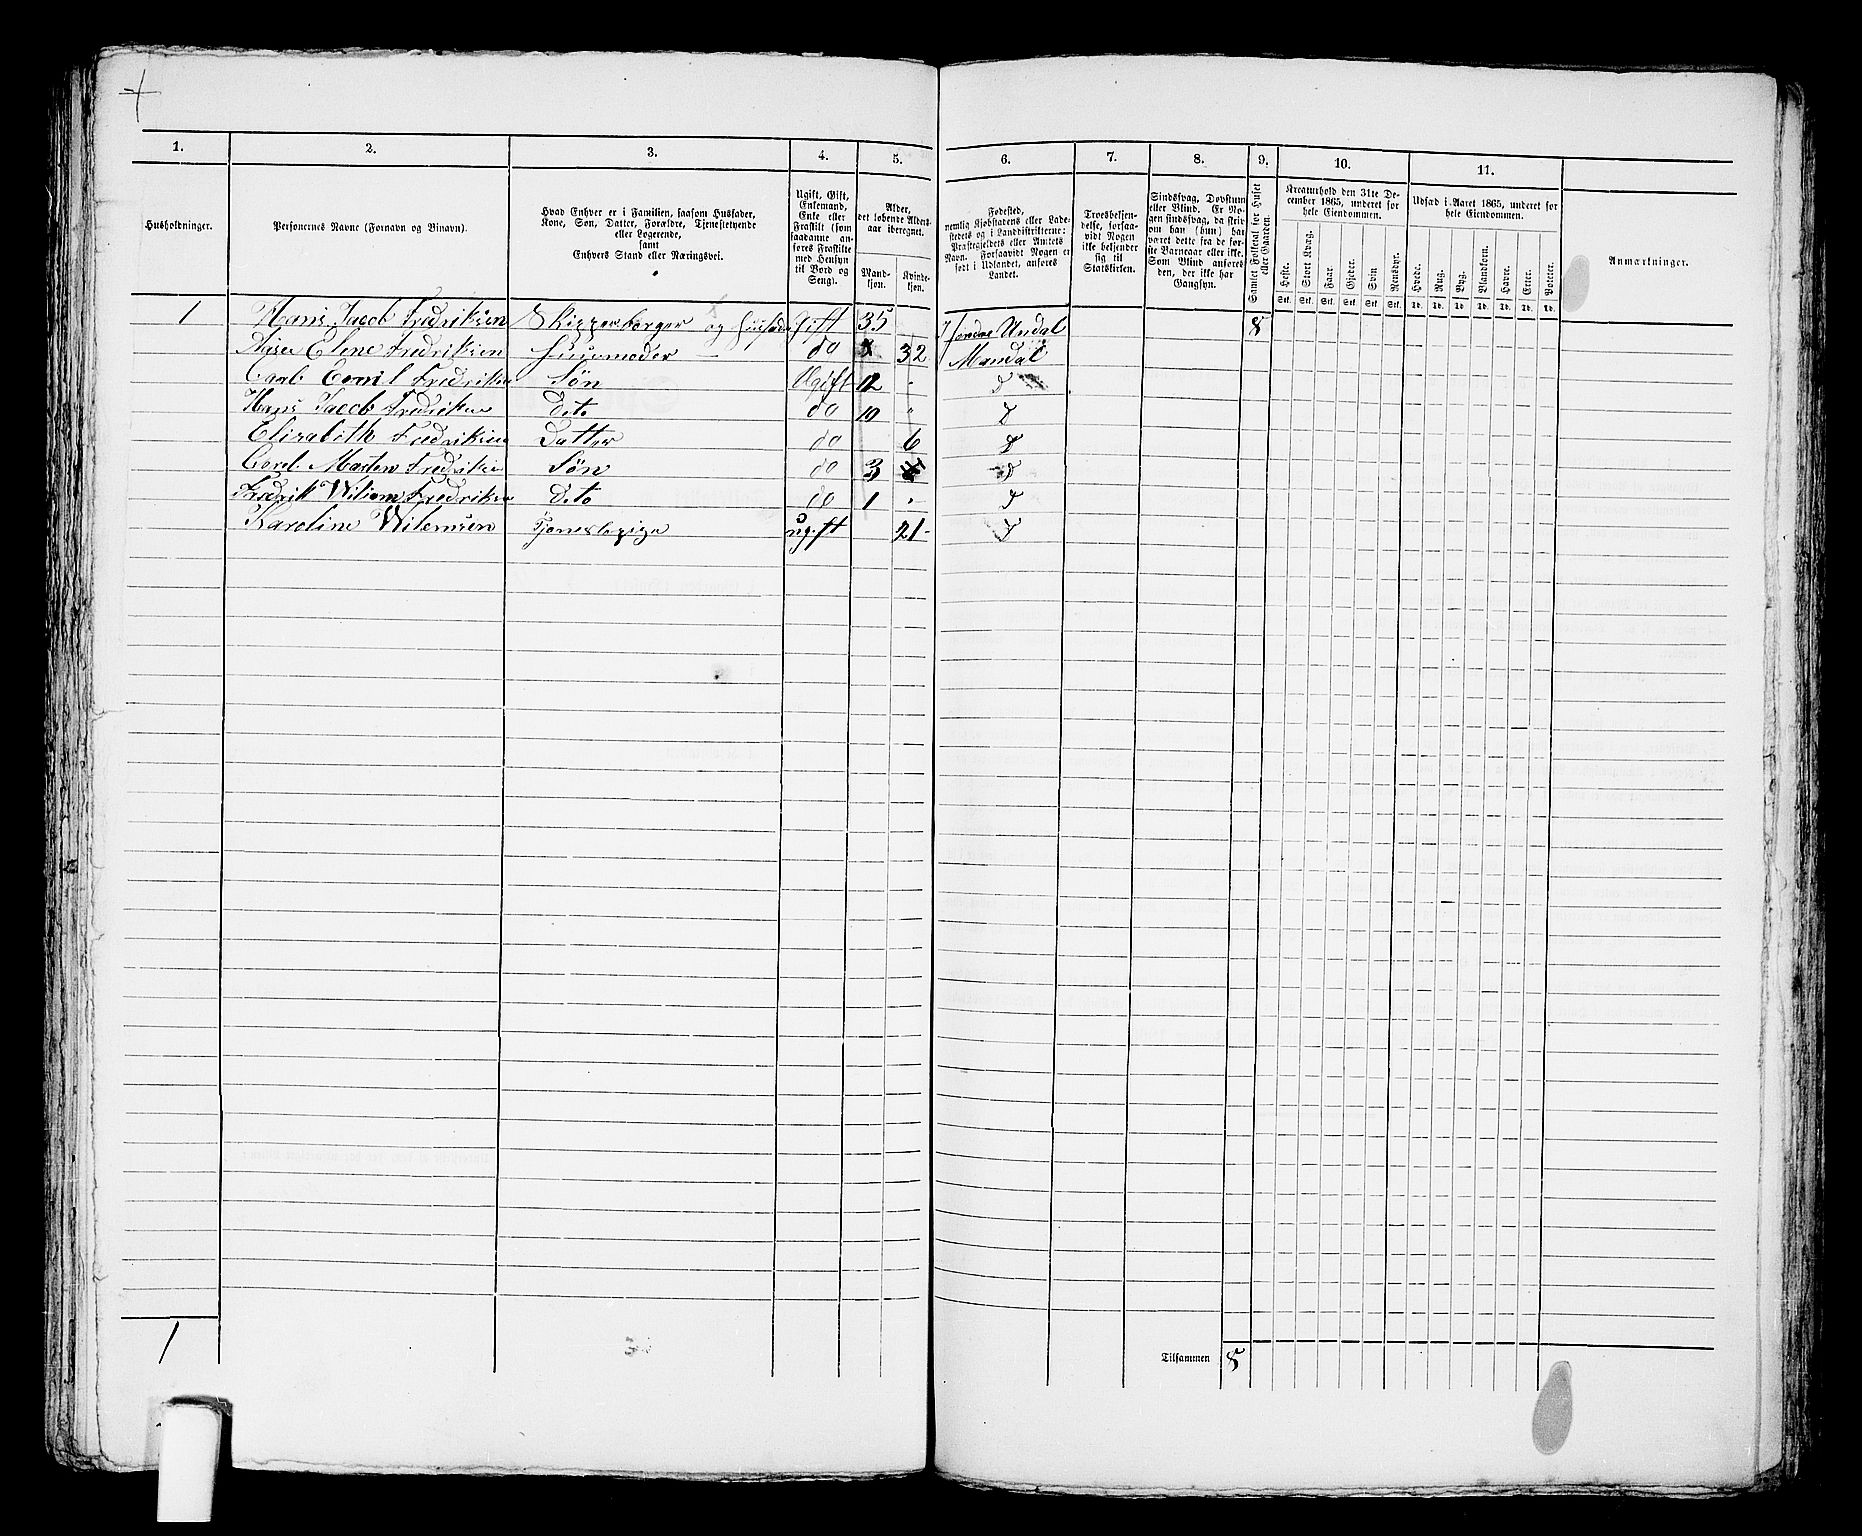 1. 2. 3. 4. 5. 6. 7. 8. 9. 10. 11.
Husholdninger.
Personernes Navne (Fornavn og Binavn).
Hvad Enhver er i Familien, saasom Husfader,
Kone, Søn, Datter, Forældre, Tjenestetyende
eller Logerende,
samt
Enhvers Stand eller Næringsvei.
Ugift, Gift,
Enkemand,
Enke eller
Fraskilt (som
saadanne anføres
Fraskilte
med Hensyn
til Bord og
Seng).
Alder,
det løbende Aldersaar
iberegnet.
Mandkjøn.
Kvindekjøn.
Fødested,
nemlig Kjøbstadens eller Ladestedets
og i Landdistrikterne:
Præstegjeldets eller Amtets
Navn. Forsaavidt Nogen er
født i Udlandet, anføres
Landet.
Troesbekjendelse,
forsaavidt
Nogen
ikke bekjender
sig til
Statskirken.
Sindssvag, Døvstum
eller Blind. Er Nogen
sindssvag, da skrives
om han (hun) har
været dette fra de første
Barneaar eller ikke.
Som Blind anføres
den, der ikke har
Gangsyn.
Samlet Folketal for Huset
eller Gaarden.
Kreaturhold den 31te December
1865, underet for
hele Eiendommen.
Heste. Stort Kvæg. Faar. Gjeder. Svin Rensdyr.
Stk. Stk. Stk. Stk. Stk. Stk.
Udsæd i Aaret 1865, underet for
hele Eiendommen.
Hvede. Rug. Byg. Blandkorn. Havre. Erter. Poteter.
Td. Td. Td. Td. Td. Td. Td.
Anmærkninger.
1 Hans Jacob Fredriksen Skipperborger og Gift 35 Undal 8
Elene Fredriksen Huusmoder do 32 Mandal
Carl Emil Fredriksen Søn Ugift 12
Hans Jacob Fredriksen Dito do 10
Elizabith Fredriksen Datter do 6
Carel Marten Fredriksen Søn do 3
Fredrik Wiliam Fredriksen Dito do 1
Karoline Wilemsen Tjenestepige ugift 21
1
Tilsammen 8